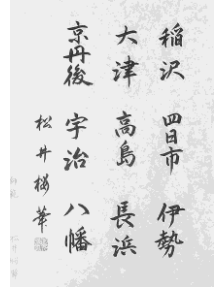 稲沢 四日市 伊勢
大津 高島 長浜
京丹後 宇治 八幡
松井桜華